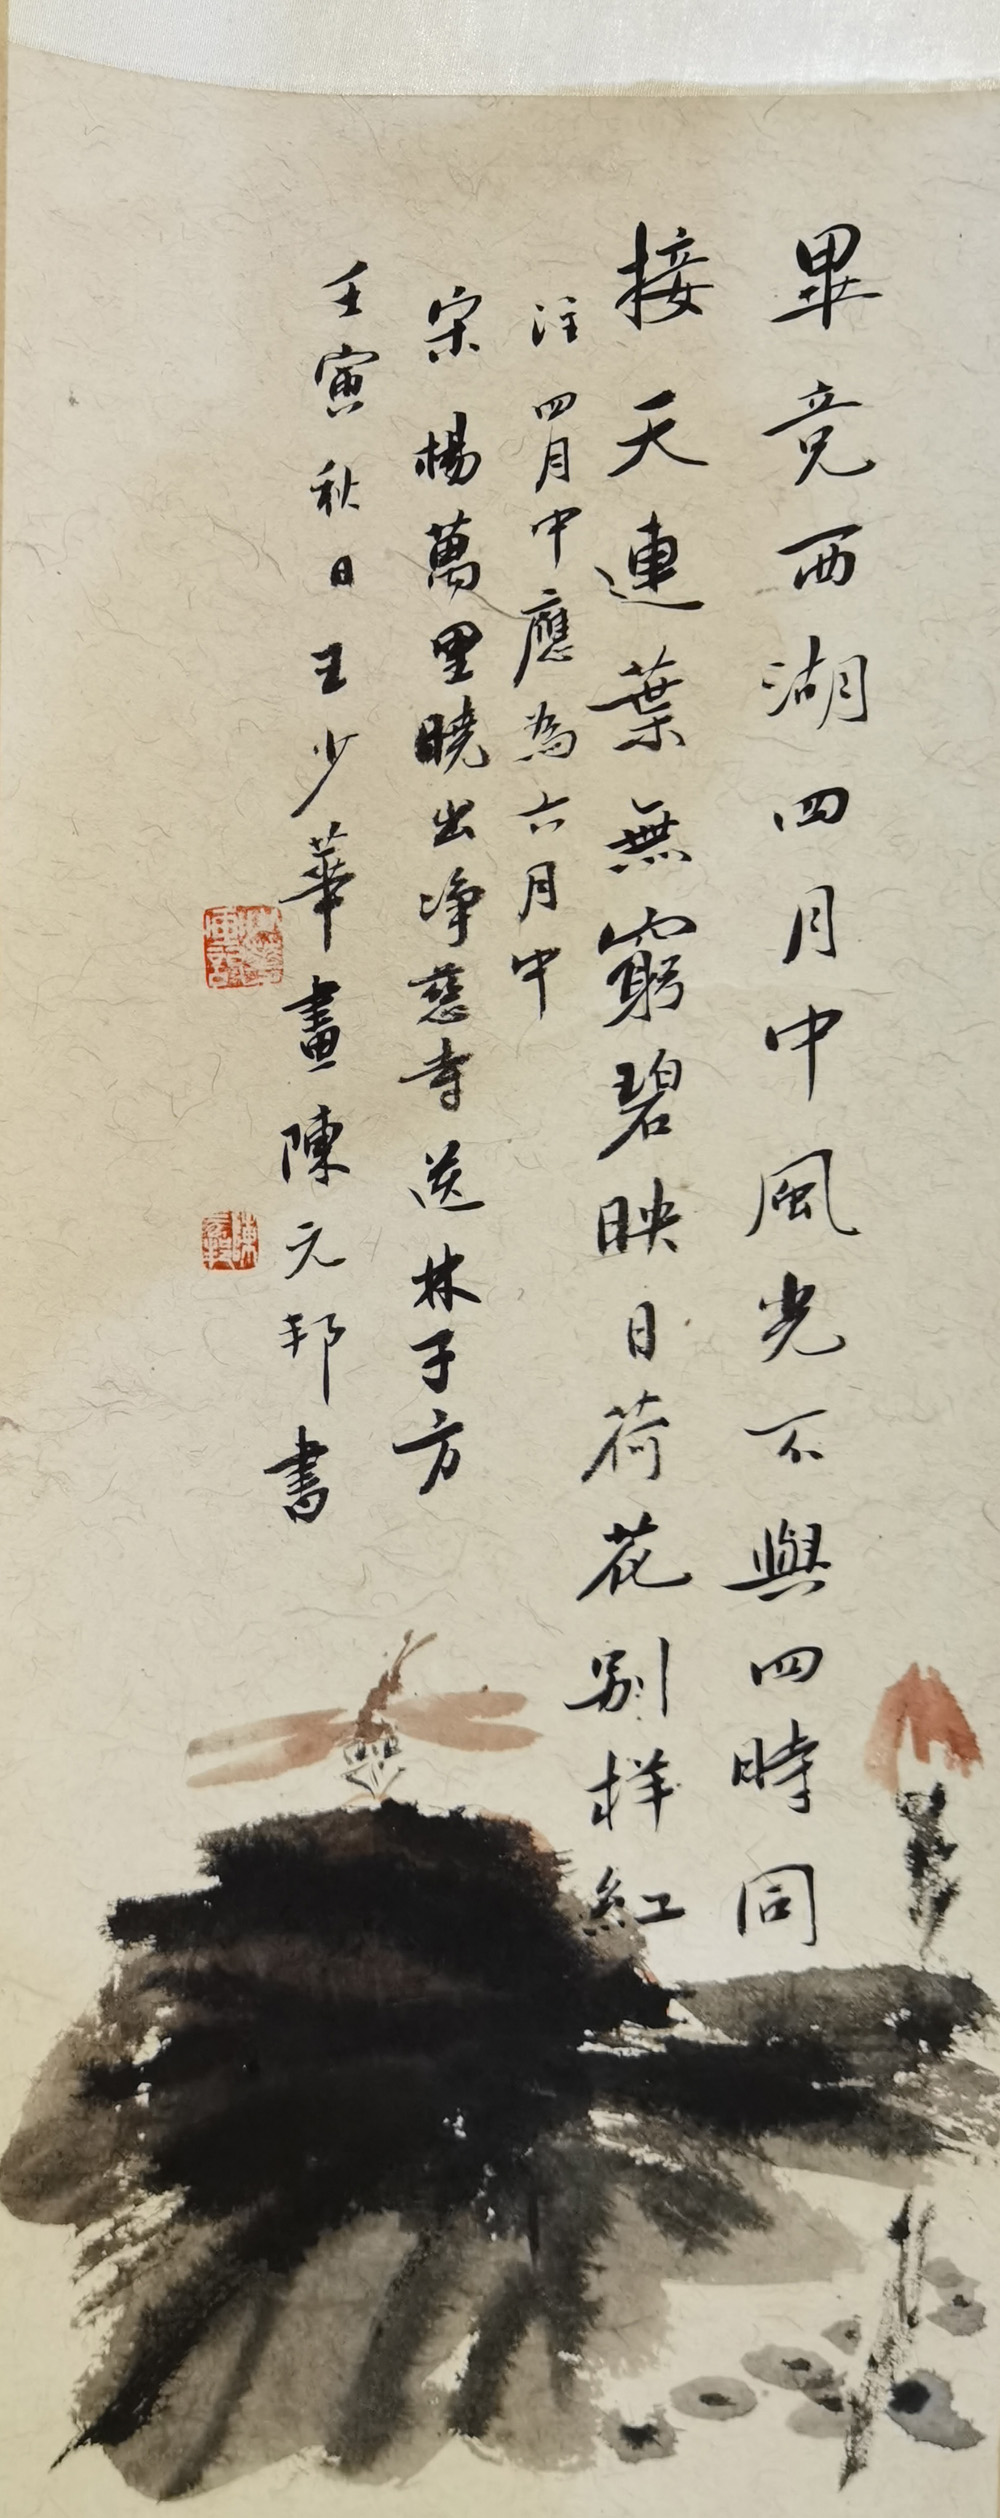 畢竟西湖四月中風光不與四時同
接天連葉無窮碧映日荷花别样紅
注四月中應為六月中
宋楊萬里曉出净慈寺送林子方
壬寅秋日王少華畫陳元邦書